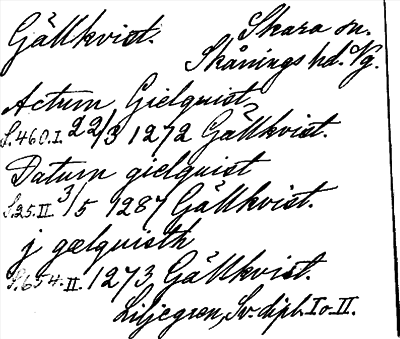 Gällkvist.
Skara sn.
Skånings hd. Vg.
Actum Gielquist
S.460.I. 22/3 1272 Gällkvist.
Datum gielquist
S.25.II. 3/5 1287 Gällkvist.
j gælquisth
S.654.II. 1273 Gällkvist.
Liljegren, Sv. dipl. I o. II.